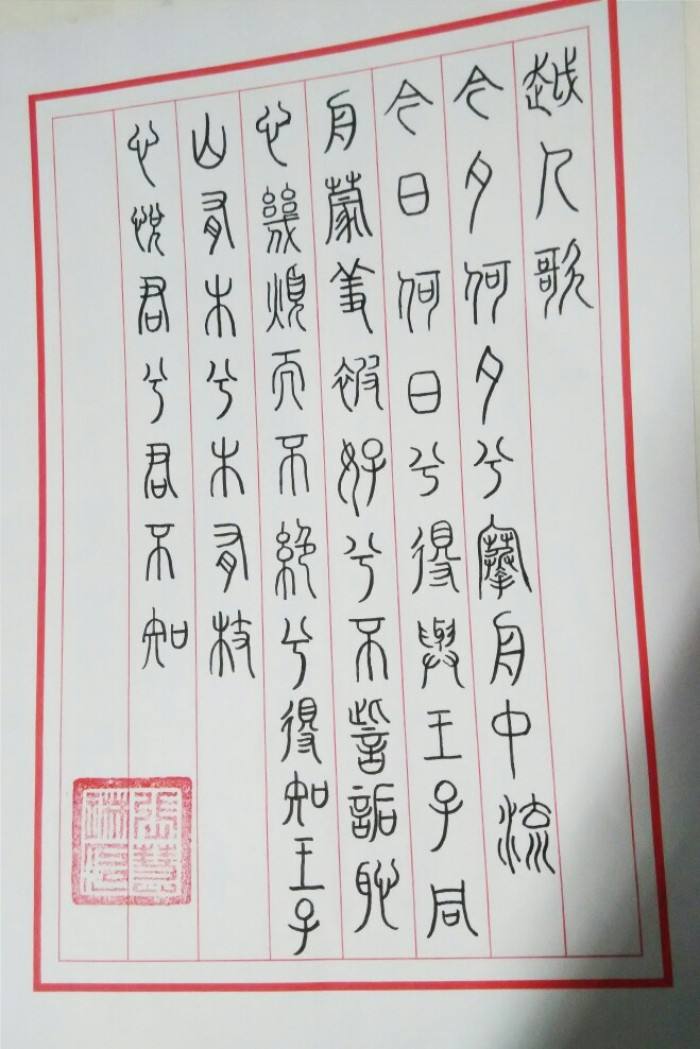 越人歌
今夕何夕兮搴舟中流
今日何日兮得與王子同
舟蒙羞被好兮不訾詬恥
心幾煩而不絕兮得知王子
山有木兮木有枝
心悅君兮君不知